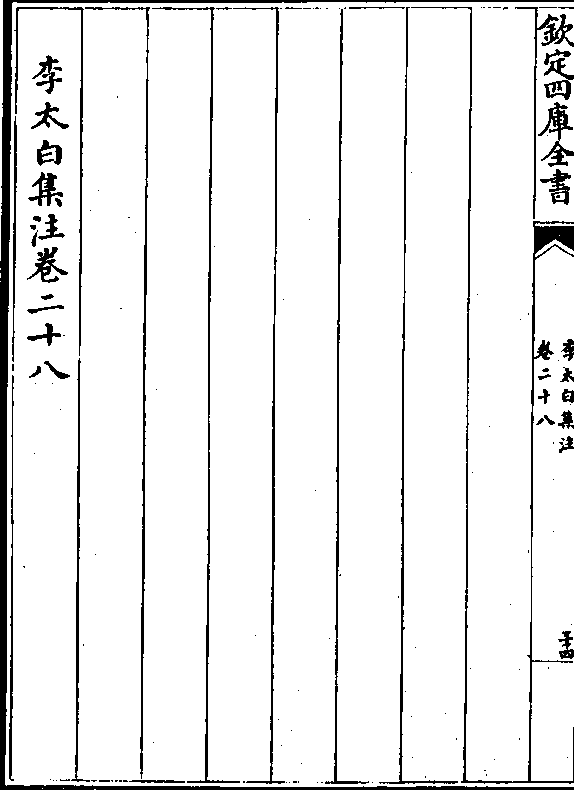 欽定四庫全書
李太白集注
卷二十八
三十四
李太白集注卷二十八